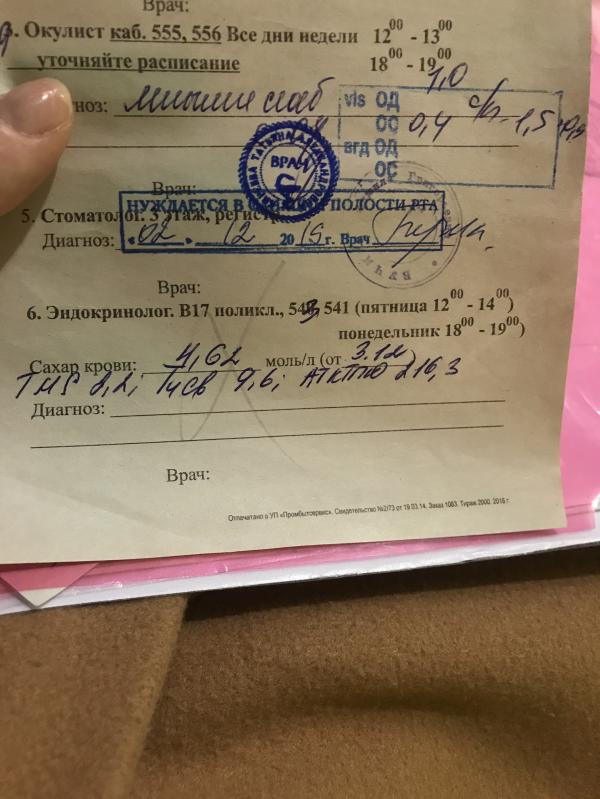 Врач:
3. Окулист каб. 555, 556 Все дни недели 12⁰⁰ - 13⁰⁰
уточняйте расписание 18⁰⁰ - 19⁰⁰
гноз: слаб
1,0
vis ОД
ОС 0,4 -1,5
вгд ОД
ОС
ТАТЬЯНА
ВРАЧ
Врач:
НУЖДАЕТСЯ В ПОЛОСТИ РТА
5. Стоматолог. 3 этаж, регистр
Диагноз: 02. 12 2019 г. Врач
Врач:
6. Эндокринолог. В17 поликл., 543, 541 (пятница 12⁰⁰ - 14⁰⁰)
понедельник 18⁰⁰ - 19⁰⁰)
Сахар крови: 4,62 моль/л (от 3.12)
9,6; 216,3
Диагноз:
Врач:
Отпечатано в УП «Промбытсервис». Свидетельство №2/73 от 19.03.14. Заказ 1083. Тираж 2000. 2016 г.